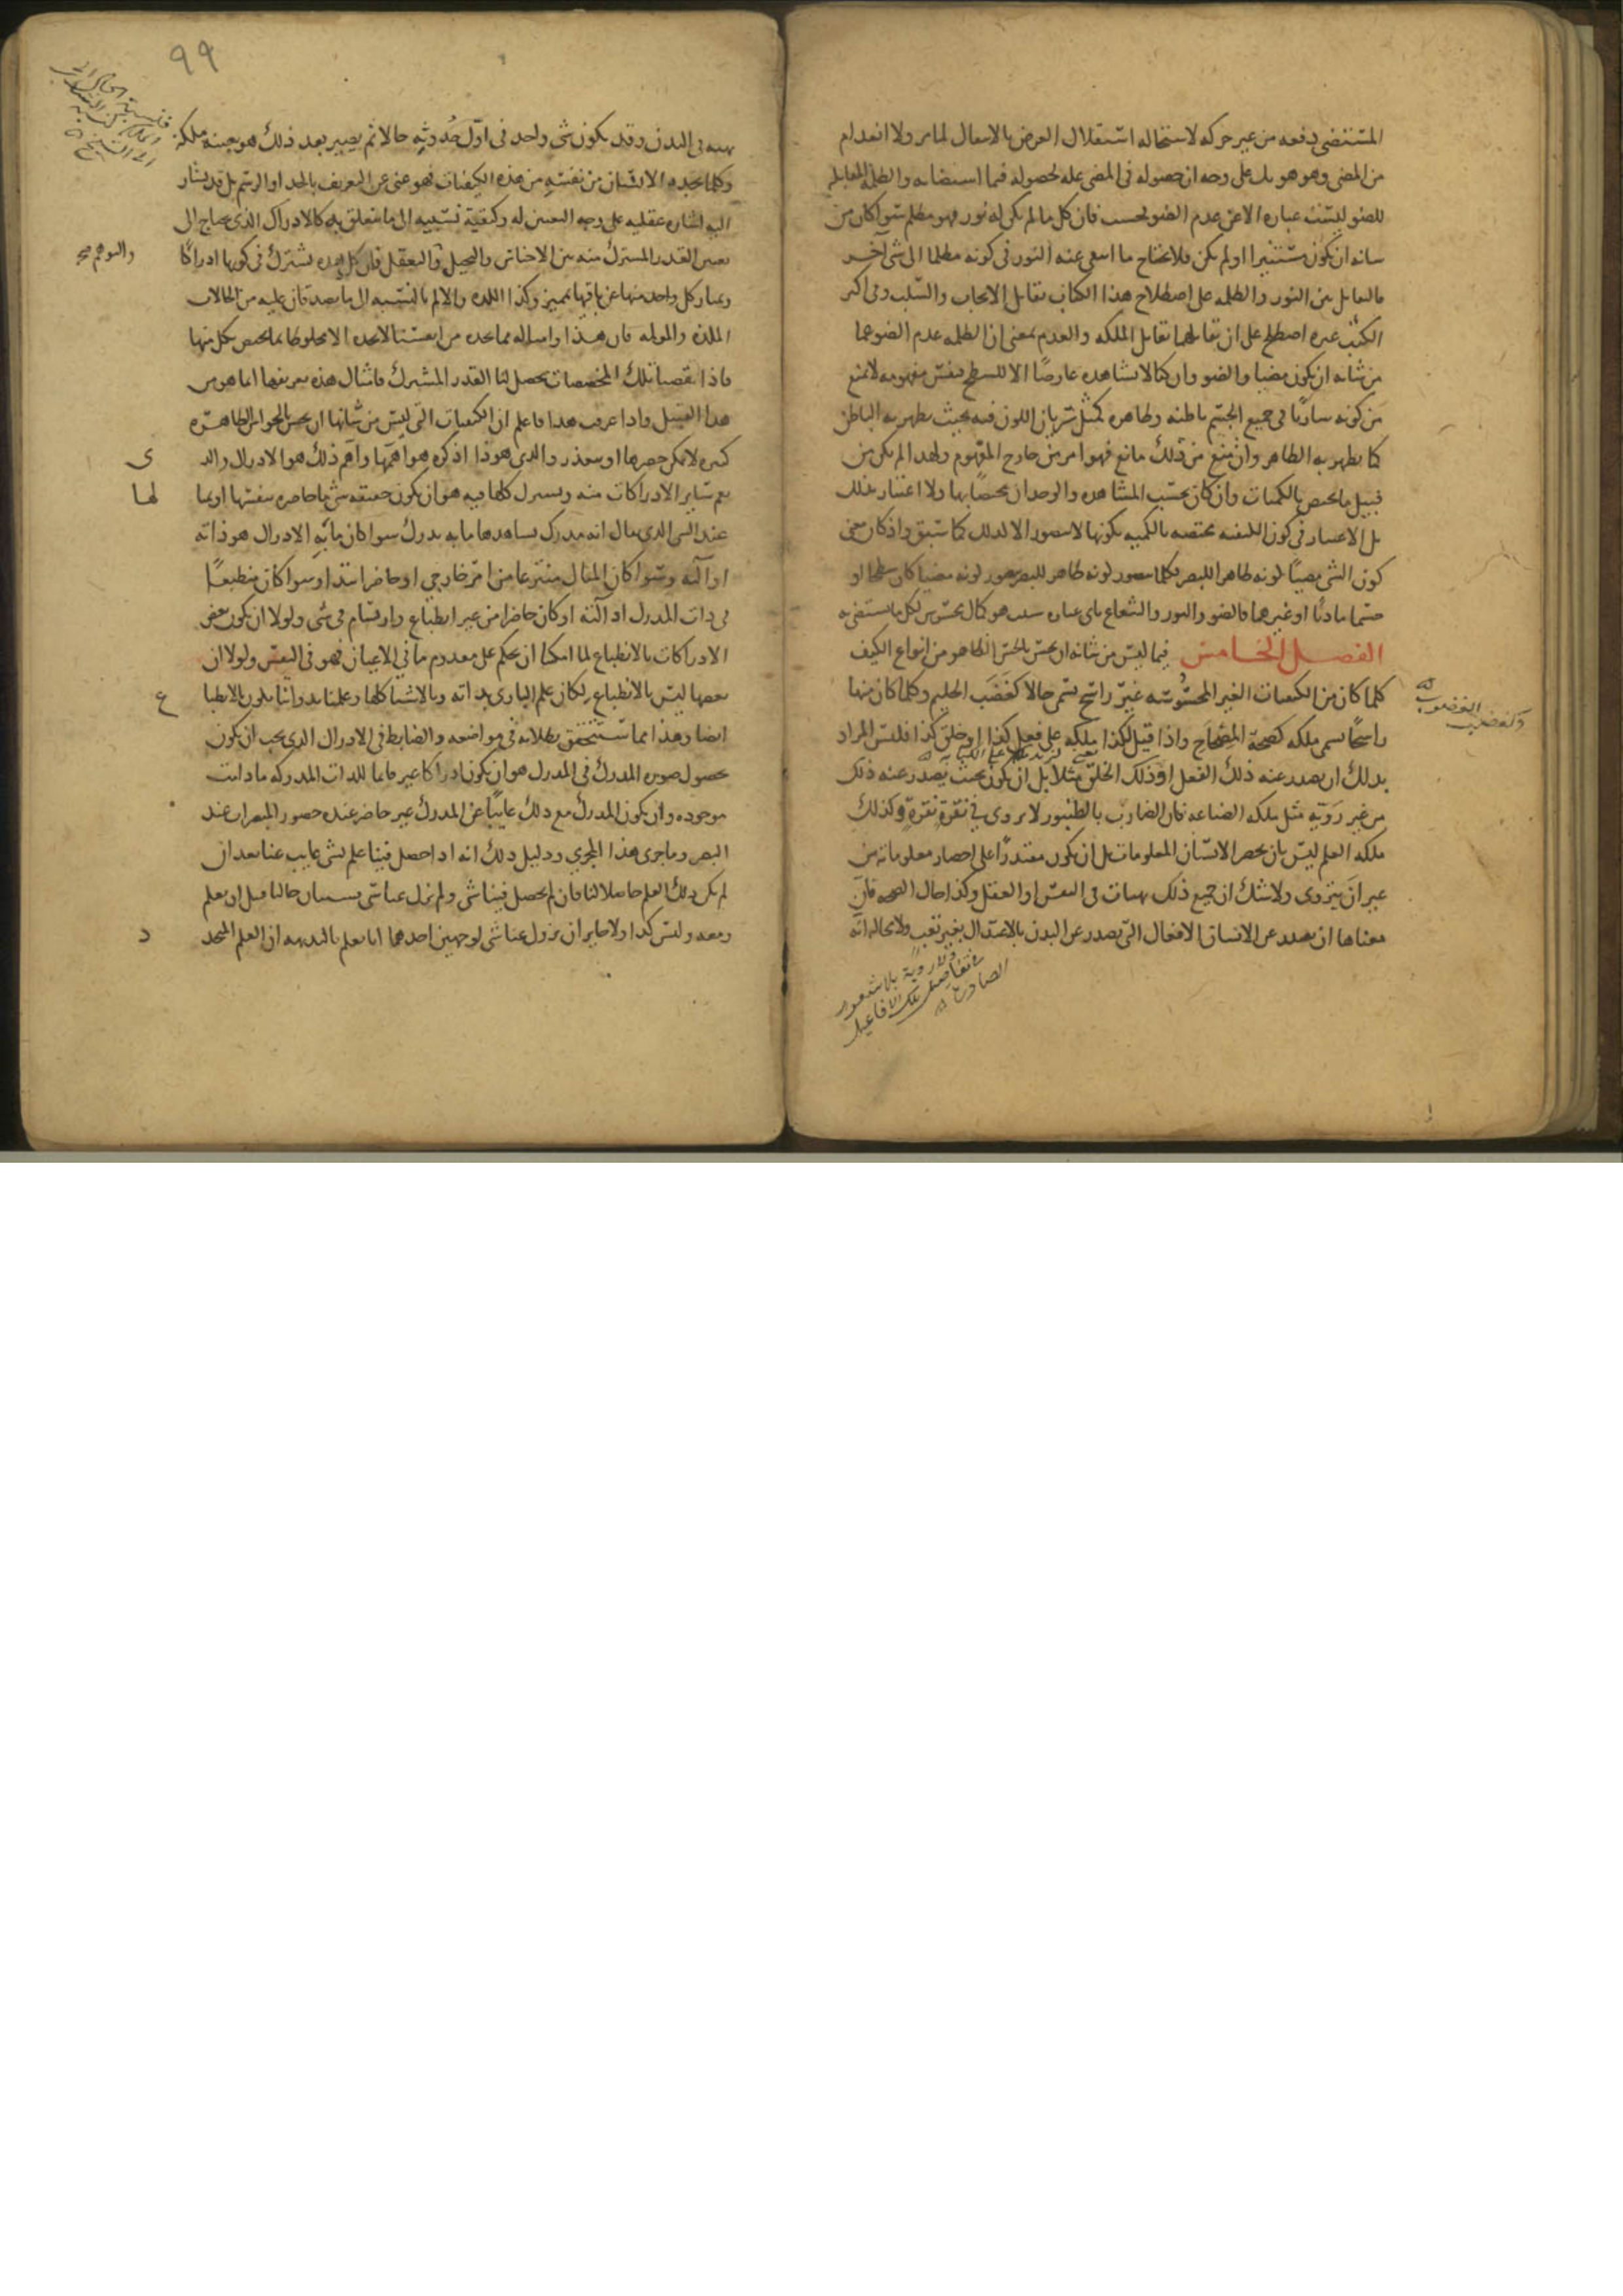 المستضئ دفعه من غير حركه لاستحاله استقلال العرض بالانتقال لما مر ولا انعدام
من المضئ وهو هو بل على وجه ان حصوله فى المضئ عله لحصوله فيما استضاء به والظلمة المقابلة
للضو ليست عباره الا عن عدم الضو فحسب فان كل ما لم يكن له نور فهو مظلم سوا كان من
شانه ان يكون مستنيرا او لم يكن ولا يحتاج ما انتفى عنه النور فى كونه مظلما الى شئ آخر
فالتقابل بين النور والظلمه على اصطلاح هذا الكتاب تقابل الايجاب والسلب وفى اكثر
الكتب غيره اصطلح على ان تقابلهما تقابل الملكه والعدم بمعنى ان الظلمه عدم الضو عما
من شانه ان يكون مضيا والضو وان كنا لا نشاهده عارضا الا للسطح فنفس مفهومه لا تمنع
من كونه ساريا فى جميع الجسم باطنه وظاهره كمثل سريان اللون فيه بحيث يظهر به الباطن
كما يظهر به الظاهر وان منع من ذلك مانع فهو امر من خارج المفهوم ولهذا لم يكن من
قبيل ما يختص بالكميات وان كان بحسب المشاهده والوجدان مختصا بها ولا اعتبار بذلك
بل الاعتبار فى كون الكيفيه مختصه بالكميه بكونها لا تتصور الا لذلك كما سبق واذ كان معنى
كون الشى مضيئا كونه ظاهرا للبصر فكلما يتصور كونه ظاهرا للبصر يتصور كونه مضيا كان سطحا او
جسما ماديا او غيرهما فالضو والنور والشعاع باى عباره شئت هو كمال محسوس لكل ما يستضئ به
الفصل الخامس فيما ليس من شانه ان يحس بالحس الظاهر من انواع الكيف
كلما كان من الكيفيات الغير المحسوسه غير راسخ سمى حالا كغضب الحليم وكلما كان منها
راسخا سمى ملكه كصحة المصحاح واذا قيل لكذا ملكه على فعل كذا او خلق كذا فليس المراد
بذلك ان يصدر عنه ذلك الفعل او ذلك الخلق مثلا بل ان يكون بحيث يصدر عنه ذلك
من غير روية مثل ملكه الصناعه فان الضارب بالطنبور لا يروى فى نقرة نقرة وكذلك
ملكه العلم ليس بان يحصر الانسان المعلومات بل ان يكون مقتدرا على احضار معلوماته من
غير ان يتروى ولا شك ان جميع ذلك هيات فى النفس او العقل وكذا حال الصحه فان
معناها ان يصدر عن الانسان الافعال التى تصدر عن البدن بالاعتدال بغير تعب ولا محاله انه
ولا روية بلا شعور
فى تفاصيل تلك الافاعيل
الصادره
وكغضب الغضوب
٩٩
هيئه فى البدن وقد يكون شى واحد فى اول حدوثه حالا ثم يصير بعد ذلك هو بعينه ملكة
وكلما يجده الانسان من نفسه من هذه الكيفيات فهو غنى عن التعريف بالحد او الرسم بل قد يشار
اليه اشاره عقليه على وجه التعيين له وكيفية نسبته الى ما يتعلق به كالادراك الذى يحتاج الى
تعيين القدر المشترك منه بين الاحساس والتخيل والتعقل فان كل هذه تشترك فى كونها ادراكا
والتوهم صح
ويمتاز كل واحد منها عن باقيها بمميز وكذا اللذه والالم بالنسبه الى ما يصدقان عليه من الحالات
الملذه والمولمه فان هذا وامثاله مما نجده من انفسنا لا نجده الا مخلوطا بما يخصص بكل منها
فاذا نقصنا تلك المخصصات تحصل لنا القدر المشترك فامثال هذه تعريفها انما هو من
هذا القبيل واذا عرفت هذا فاعلم ان الكيفيات التى ليس من شانها ان تحس بالحواس الظاهره
كثيره لا يمكن حصرها او يتعذر والذى هو ذا اذكره هو اهمها واهم ذلك هو الادراك والذ
يعم ساير الادراكات منه وتشترك كلها فيه هو ان يكون حقيقه شى ما حاضره بنفسها او بمثا
ى
لها
عند الشى الذى يقال انه مدرك يشاهدها ما به يدرك سوا كان ما به الادراك هو ذاته
او آلته وسوا كان المثال منتزعا من امر خارجى او حاضرا ابتدا وسوا كان منطبعا
فى ذات المدرك او آلته او كان حاضرا من غير انطباع وارتسام فى شى ولولا ان يكون بعض
الادراكات بالانطباع لما امكنا ان نحكم على معدوم ما فى الاعيان فهو فى النفس ولولا ان
بعضها ليس بالانطباع لكان علم البارى بذاته وبالاشيا كلها وعلمنا بذواتنا يكون بالانطبا
ع
ايضا وهذا مما ستتحقق بطلانه فى مواضعه والضابط فى الادراك الذى يجب ان يكون
بحصول صوره المدرك فى المدرك هو ان يكون ادراكا غير دايما للذات المدركه ما دامت
موجوده وان يكون المدرك مع ذلك غايبا عن المدرك غير حاضر عنده حضور المبصرات عند
البصر وما جرى هذا المجرى ودليل ذلك انه اذا حصل فينا علم بشى غايب عنا بعد ان
لم يكن ذلك العلم حاصلا لنا فان لم يحصل فينا شى ولم يزل عنا شى فسيان حالنا قبل ان نعلم
وبعده وليس كذا ولا جايز ان يزول عنا شى لوجهين احدهما انا نعلم بالبديهه ان العلم المتجد
د